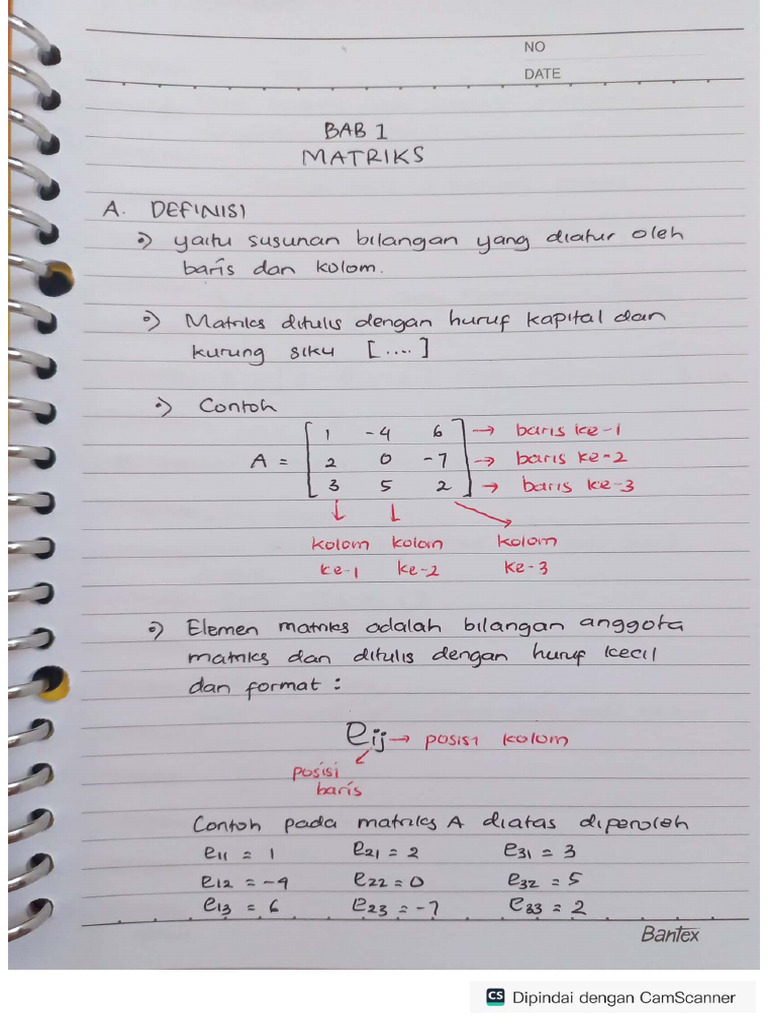 NO
DATE
BAB 1
MATRIKS
A. DEFINISI
•) yaitu susunan bilangan yang diatur oleh
baris dan kolom.
•) Matriks ditulis dengan huruf kapital dan
kurung siku [....]
•) Contoh
A = [ 1 -4 6 ] → baris ke-1
2 0 -7 → baris ke-2
3 5 2 → baris ke-3
kolom kolom kolom
ke-1 ke-2 ke-3
•) Elemen matriks adalah bilangan anggota
matriks dan ditulis dengan huruf kecil
dan format :
eij → posisi kolom
posisi
baris
Contoh pada matriks A diatas diperoleh
e11 = 1 e21 = 2 e31 = 3
e12 = -4 e22 = 0 e32 = 5
e13 = 6 e23 = -7 e33 = 2
Bantex
CS Dipindai dengan CamScanner